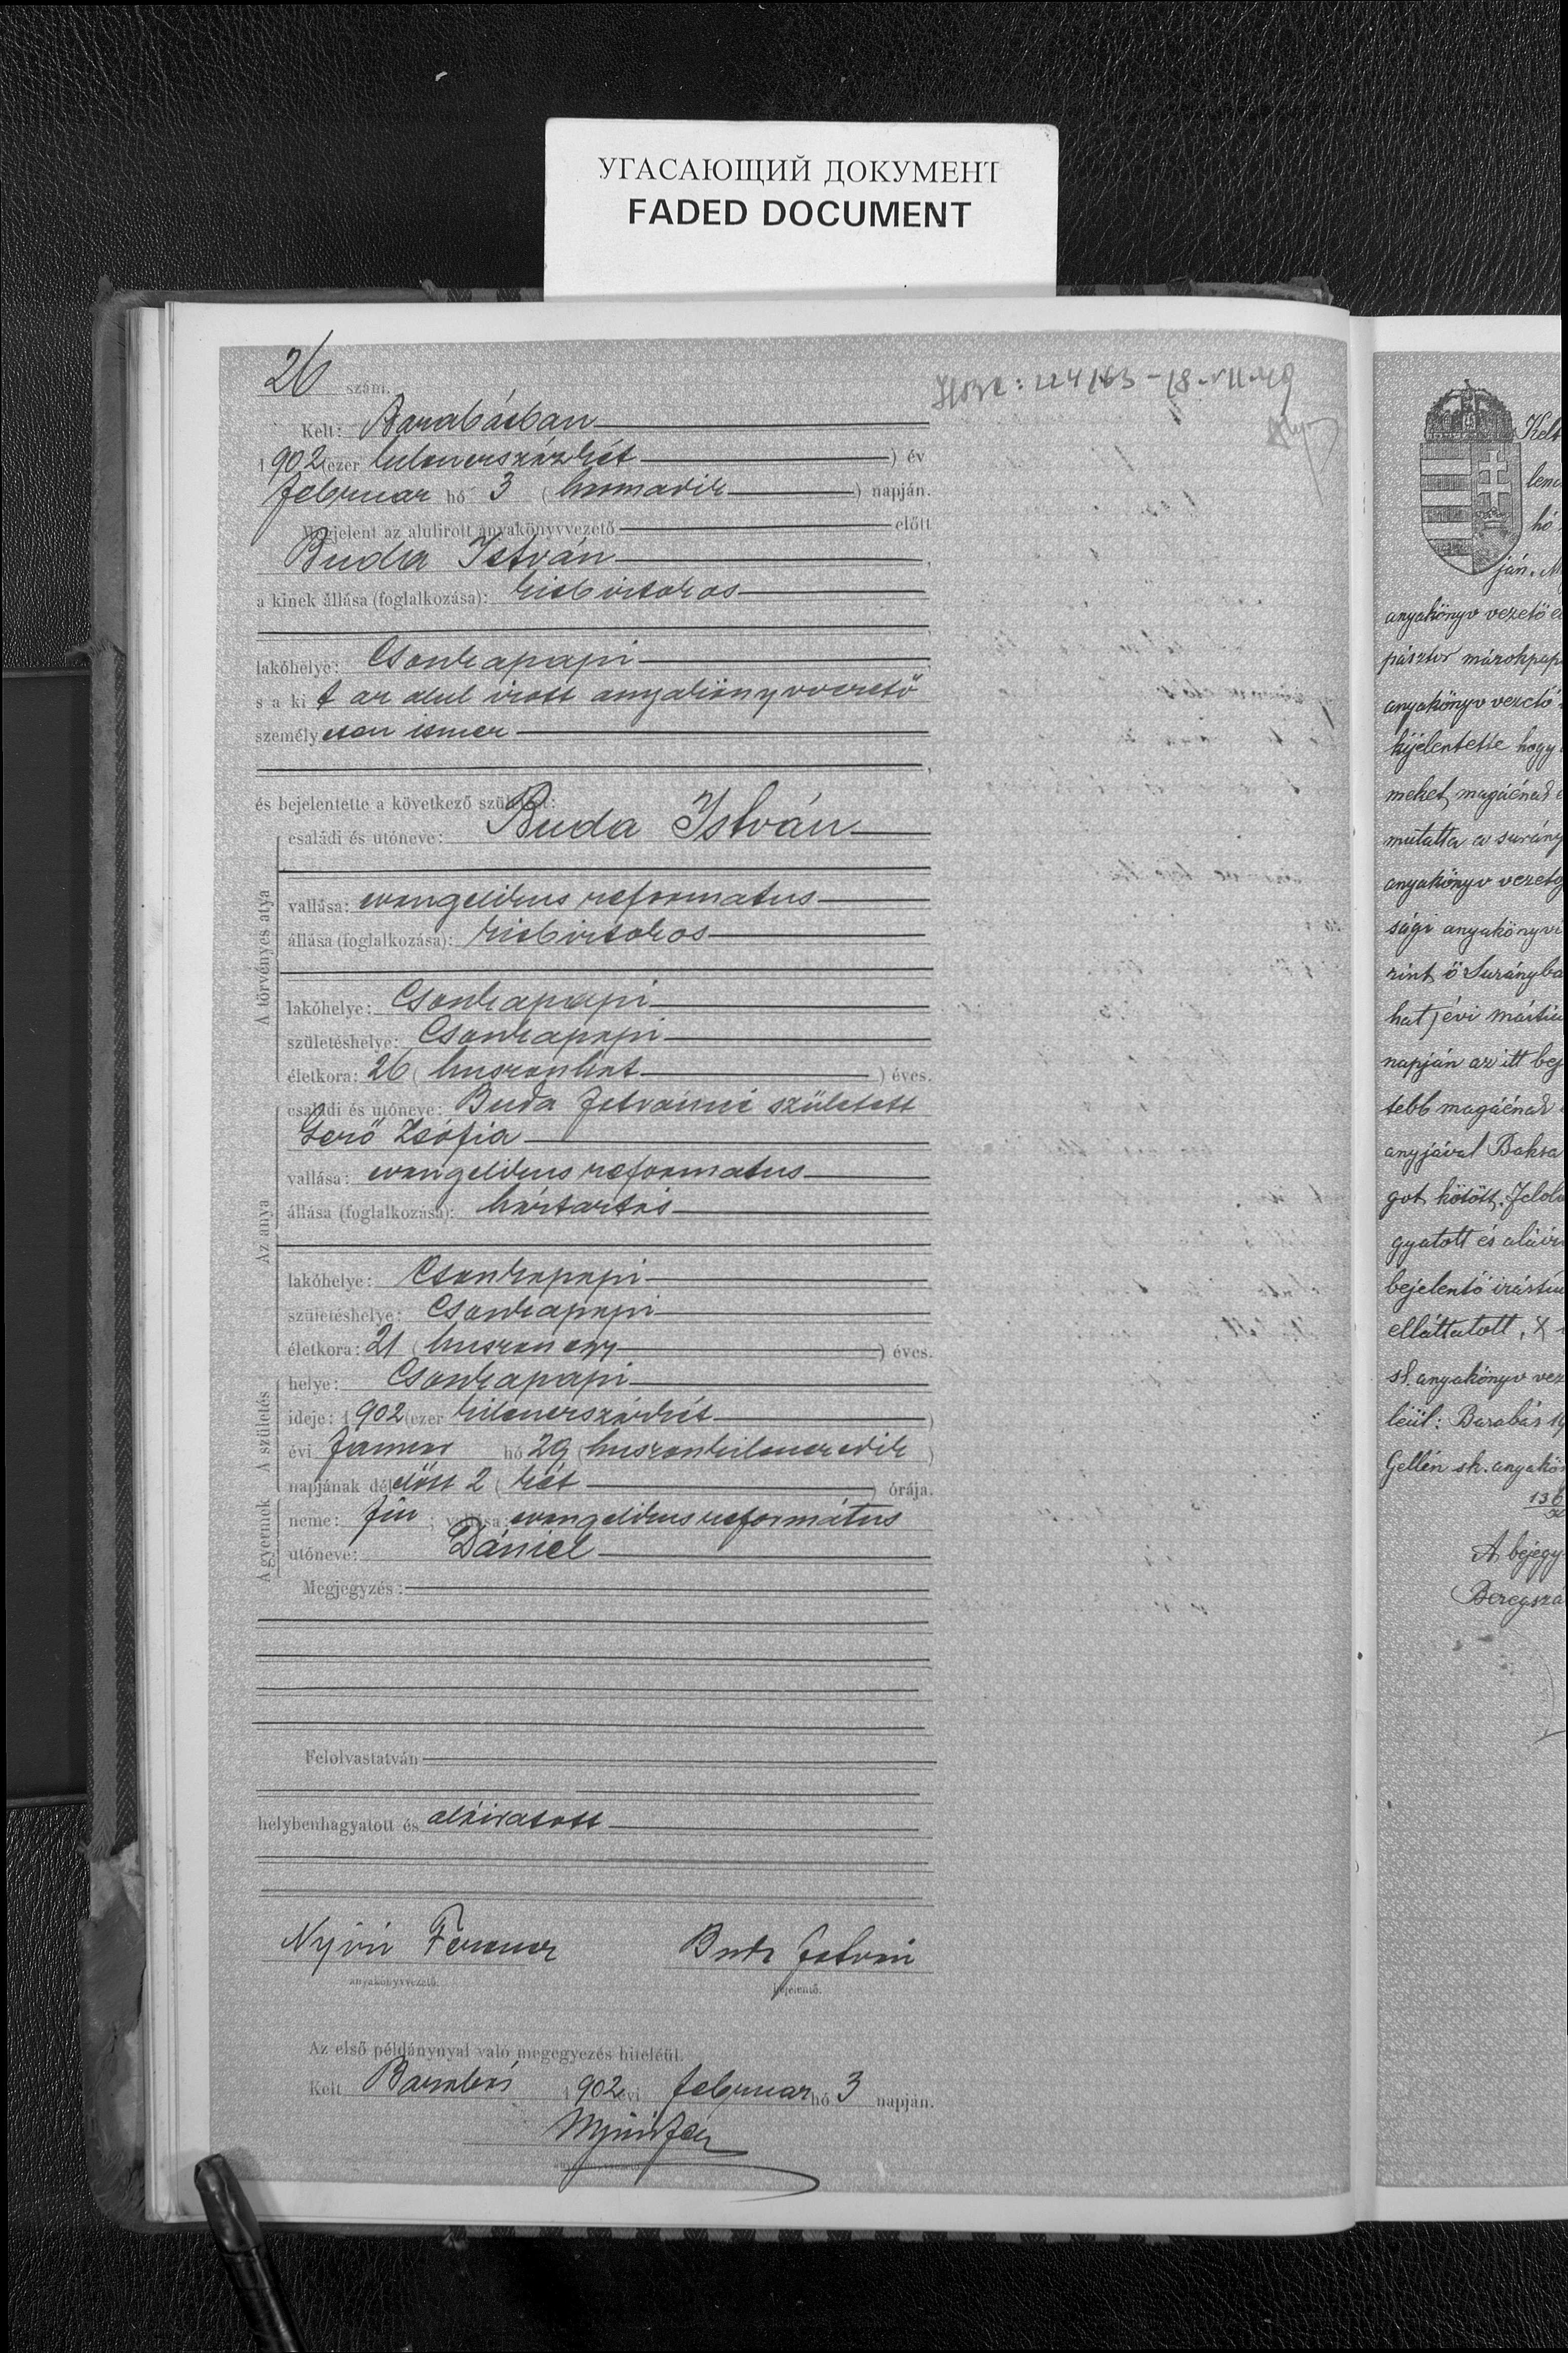 УГАСАЮЩИЙ ДОКУМЕНТ
FADED DOCUMENT
26 szám.
Kelt: Barabásban
1902 (ezer kilencszázkét) év
február hó 3 (harmadik) napján.
Megjelent az alulirott anyakönyvvezető előtt
Buda István
a kinek állása (foglalkozása): kisbirtokos
lakóhelye: Csonkapapi
s a kit az alul irott anyakönyvvezető
személyesen ismer
és bejelentette a következő születést:
A törvényes atya
családi és utóneve: Buda István
vallása: evangelikus reformatus
állása (foglalkozása): kisbirtokos
lakóhelye: Csonkapapi
születéshelye: Csonkapapi
életkora: 26 (huszonhat) éves.
Az anya
családi és utóneve: Buda Istvánné született
Gerő Zsófia
vallása: evangelikus reformatus
állása (foglalkozása): háztartás
lakóhelye: Csonkapapi
születéshelye: Csonkapapi
életkora: 21 (huszonegy) éves.
A születés
helye: Csonkapapi
ideje: 1902 (ezer kilencszázkét)
évi január hó 29 (huszonkilencedik)
napjának délelőtt 2 (két) órája.
A gyermek
neme: fiú; vallása: evangelikus református
utóneve: Dániel
Megjegyzés:
Felolvastatván
helybenhagyatott és aláiratott
Nyiri Ferencz Buda István
anyakönyvvezető. bejelentő.
Az első példánynyal való megegyezés hiteléül.
Kelt Barabás 1902 évi február hó 3 napján.
Nyiri Fer
Kelt
lenc
hó
ján. M
anyakönyv vezető e
pásztor márokpap
anyakönyv vezető
kijelentette hogy
meket magáénak e
mutatta a surány
anyakönyv vezető
sági anyakönyv
rint ő Surányba
hat) évi márcziu
napján az itt bej
tebb magáénak
anyjával Baksa
got kötött. Felol
gyatott és aláir
bejelentő irástu
elláttatott, X
sk. anyakönyv vez
leül: Barabás 19
Gellén sk. anyakön
A bejegy
Beregsza